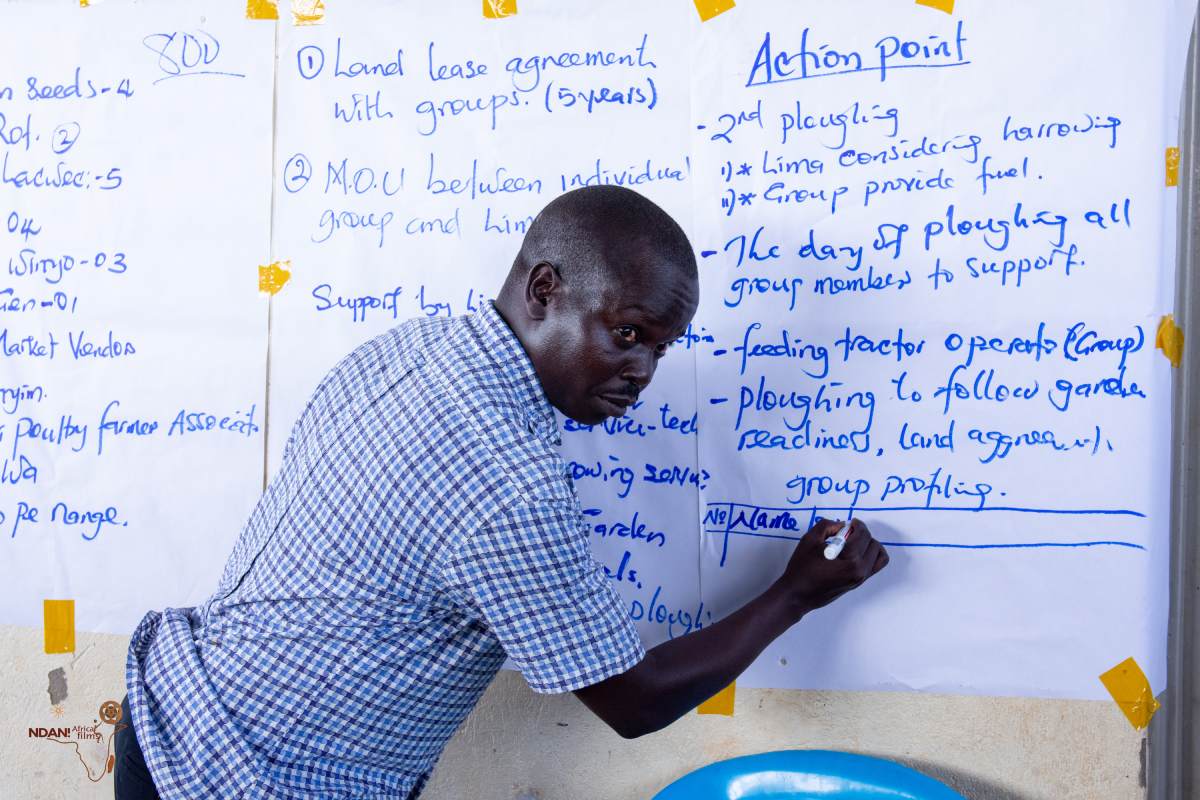 800
Seeds-4
Rot. ②
-5
04
Wiryo-03
-01
Market Vendos
Poultry farmer Associat
Wa
pe nange.
① Land lease agreement
with groups. (5 years)
② M.O.U between individual
group and Lim
Support by Li
service-tech
owing
Garden
els.
plough
Action point
- 2nd ploughing
i)* Lima considering harrowing
ii)* Group provide fuel.
- The day of ploughing all
group member to support.
- feeding tractor operators (Group)
- ploughing to follow garden
readiness, land
group profiling.
No Name
NDANI Africa
films